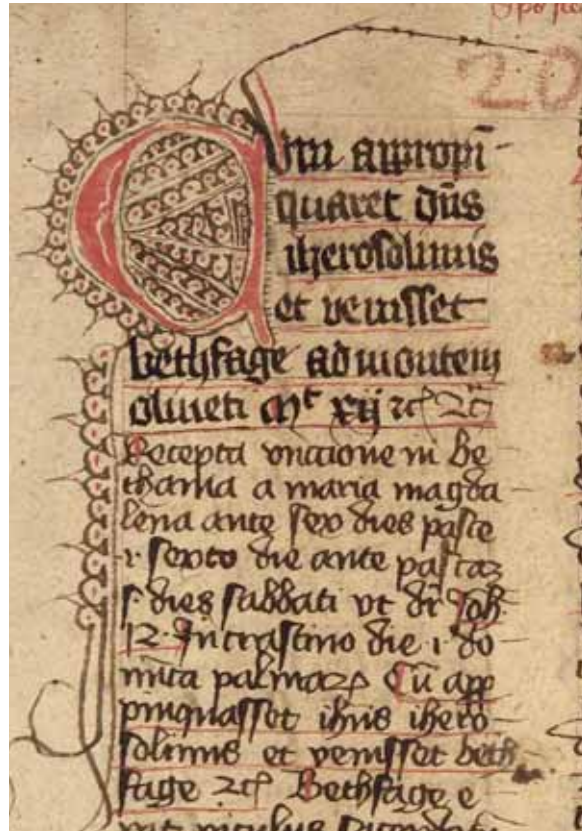 20
CUm appropī-
quaret dn̄s
iherosolimis
et venisset
bethfage ad montem
oliueti Mt xij rcꝭ 2cꝭ
Recepta vnccione in be
thania a maria magda
lena ante sex dies pasce
.i. sexto die ante pascaꝫ
s. dies sabbati vt dr̄ Joh
12. In crastino die .i. do
mīca palmaꝝ Cū app
pinquasset ihus ihero
solimis et venisset beth
fage 2cꝭ Bethfage e
rat viculus